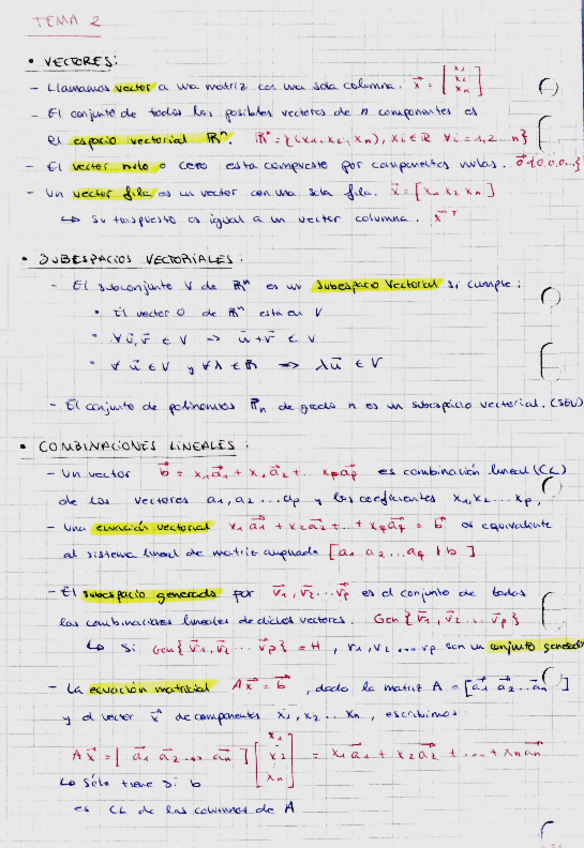 TEMA 2
• VECTORES:
- Llamamos vector a una matriz con una sola columna. x⃗ = [x₁ x₂ xₙ]
- El conjunto de todos los posibles vectores de n componentes es
el espacio vectorial ℝⁿ. ℝⁿ = {(x₁, x₂, xₙ), xᵢ ∈ ℝ ∀i = 1,2.. n}
- El vector nulo o cero esta compuesto por componentes nulas. 0⃗ {0,0,0...}
- Un vector fila es un vector con una sola fila. x⃗ = [x₁ x₂ xₙ]
↳ Su traspuesto es igual a un vector columna. x⃗ᵀ
• SUBESPACIOS VECTORIALES:
- El subconjunto V de ℝⁿ es un subespacio vectorial si cumple:
• El vector 0 de ℝⁿ esta en V
• ∀ u⃗, v⃗ ∈ V → u⃗ + v⃗ ∈ V
• ∀ u⃗ ∈ V y ∀λ ∈ ℝ → λu⃗ ∈ V
- El conjunto de polinomios ℙₙ de grado n es un subespacio vectorial. (SEV)
• COMBINACIONES LINEALES:
- Un vector b⃗ = x₁a⃗₁ + x₂a⃗₂ + ... xₚa⃗ₚ es combinación lineal (CL)
de los vectores a₁, a₂ ... aₚ y los coeficientes x₁, x₂ ... xₚ.
- Una ecuación vectorial x₁a⃗₁ + x₂a⃗₂ + ... + x₉a⃗₉ = b⃗ es equivalente
al sistema lineal de matriz ampliada [a₁ a₂ ... a₉ | b]
- El subespacio generado por v⃗₁, v⃗₂ ... v⃗ₚ es el conjunto de todas
las combinaciones lineales de dichos vectores. Gen {v⃗₁, v⃗₂ ... v⃗ₚ}
↳ Si Gen {v⃗₁, v⃗₂ ... v⃗ₚ} = H, v₁, v₂ ... vₚ son un conjunto generador
- La ecuación matricial Ax⃗ = b⃗, dada la matriz A = [a⃗₁ a⃗₂ ... a⃗ₙ]
y el vector x⃗ de componentes x₁, x₂ ... xₙ, escribimos:
Ax⃗ = [a⃗₁ a⃗₂ ... a⃗ₙ] [x₁ x₂ : xₙ] = x₁a⃗₁ + x₂a⃗₂ + ... + xₙa⃗ₙ
↳ Sólo tiene si b
es CL de las columnas de A